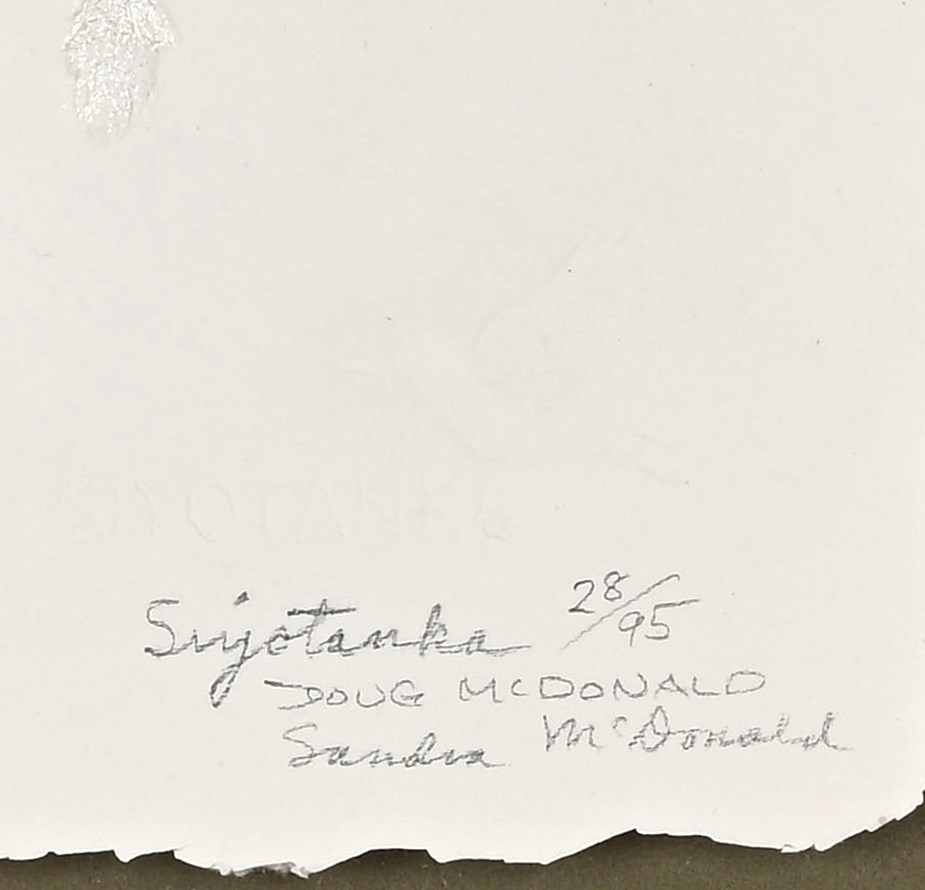 Siyotanka 28/95
DOUG MCDONALD
Sandra McDonald